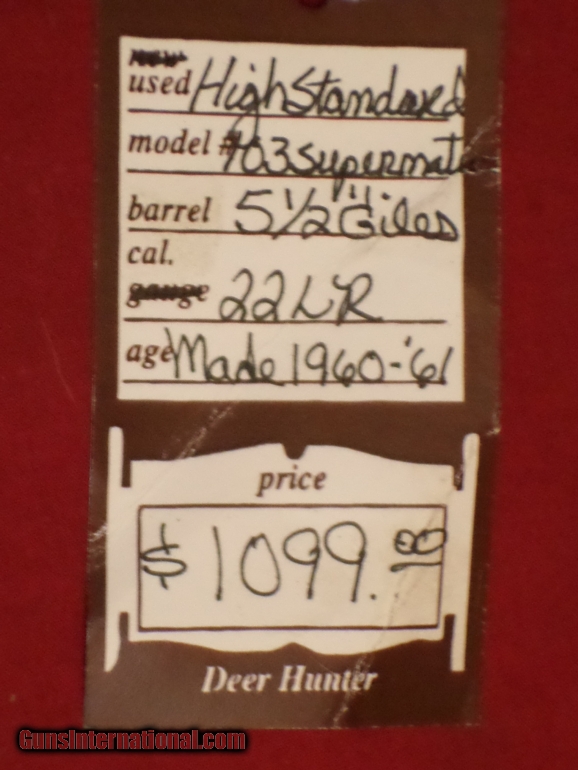 new
used High Standard
model # 103 Supermati
barrel 5 1/2" Giles
cal.
gauge 22 LR
age Made 1960-'61
price
$1099.00
Deer Hunter
GunsInternational.com